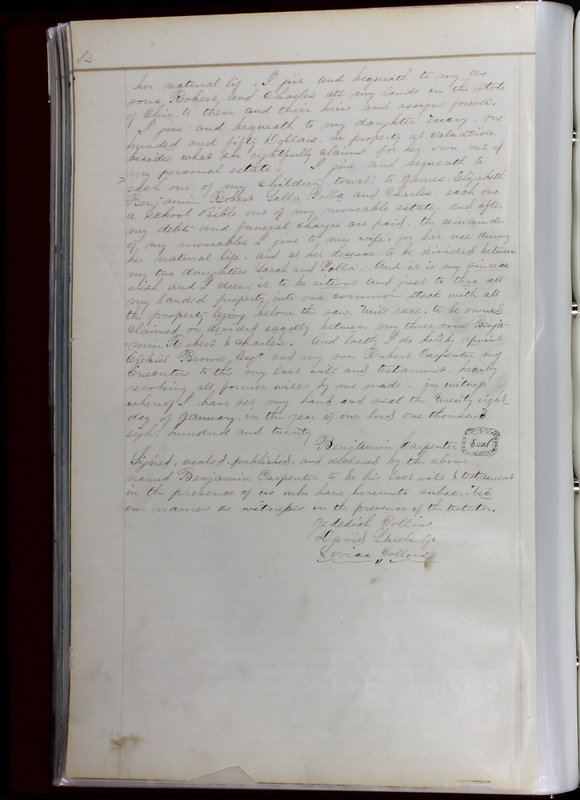 82
her natural lif. I give and bequeath to my two
sons Robert and Charles all my lands in the state
of Ohio, to them and their heirs and assigns forever.
I give and bequeath to my daughter Mary. one
hundred and fifty Dollars. in property at valuation
besides what she rightfully claims for her own out of
my personal estate. I give and bequeath to
each one of my children towit: to James. Elizabeth
Benjamin. Robert Salla Polla and Charles. each one
a School Bible out of my moveable estate. and after
my debts and funeral charges are paid. the remainder
of my moveables I give to my wife. for her use during
her natural life. and at her desease to be divided between
my two daughters Sarah and Polla. And it is my sincere
wish and I deem it to be and just to throw all
my landed property into one common stack with all
the property lying below the saw mill race. to be owned
claimed or divided eaqally between my three sons Benja-
min Robert & Charles. And lastly I do hereby apoint
Ezekiel Brown, Esqr and my son Robert Carpenter my
Executors to this my last will and testament. hearby
revoking all former wills by me made. In witness
whereof I have set my hand and seal the twenty eight-
day of January. in the year of our lord one thousand
eight hundred and twenty
Benjamin Carpenter Seal
Signed, sealed, published, and declared by the above
named Benjamin Carpenter to be his last will & testament
in the presence of us who have hereunto subscribed
our names as witnesses in the presence of the testator.
Jedediah Collins
David
Collins